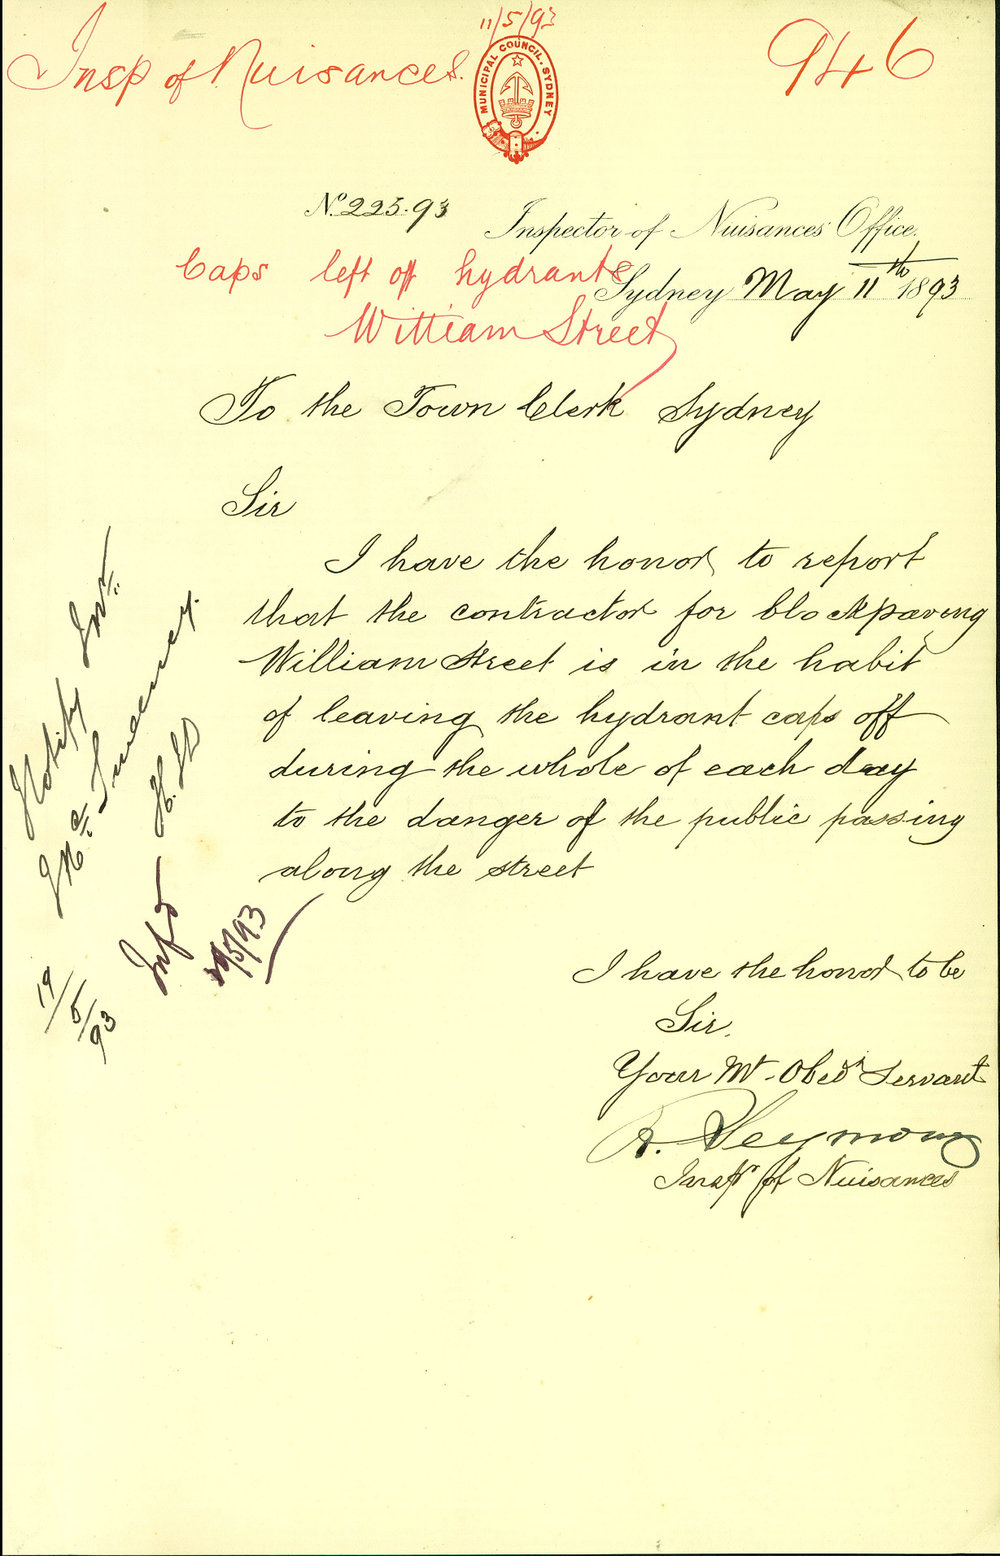 11/5/93
Insp of Nuisances.
946
MUNICIPAL COUNCIL. SYDNEY
No. 225.93
Inspector of Nuisances Office.
Caps left off hydrants
Sydney May 11th 1893
William Street
To the Town Clerk Sydney
Sir
I have the honor to report
that the contractor for blockpaving
William Street is in the habit
of leaving the hydrant caps off
during the whole of each day
to the danger of the public passing
along the street
I have the honor to be
Sir.
Your Mt. Obedt Servant
R. Seymour
Inspr of Nuisances
Notify
Mc Sweeney.
19/5/93
Infd
19/5/93